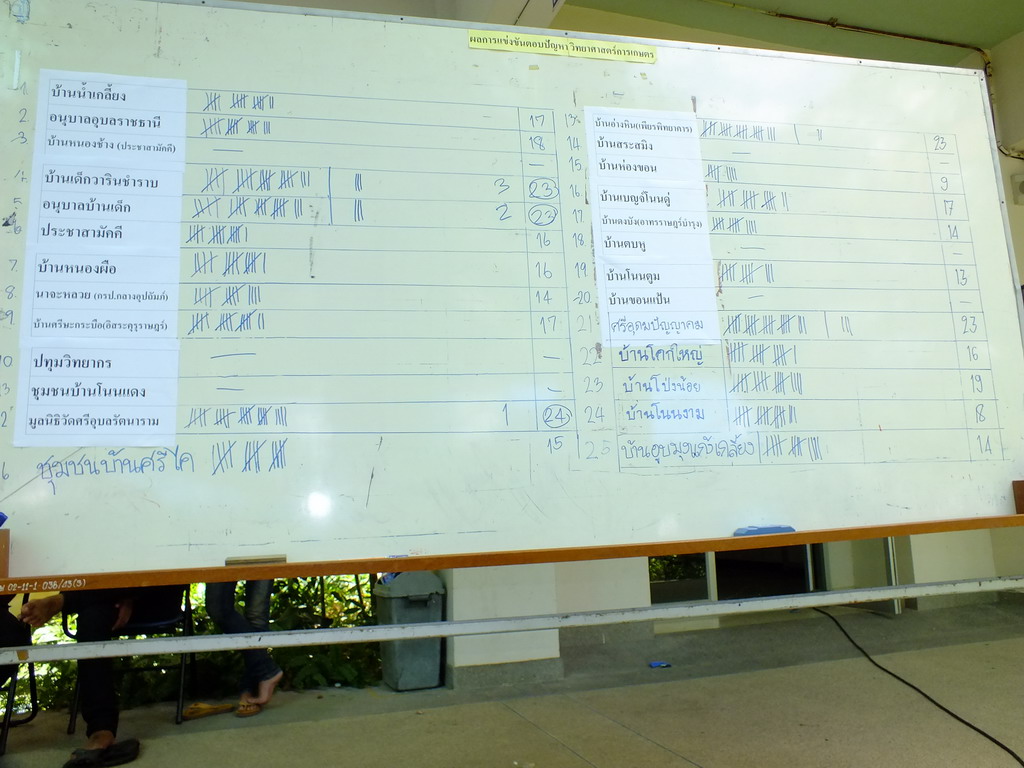 ผลการแข่งขันตอบปัญหาวิทยาศาสตร์การเกษตร
1. บ้านน้ำเกลี้ยง 17
2. อนุบาลอุบลราชธานี 18
3. บ้านหนองช้าง (ประชาสามัคคี) —
4. บ้านเด็กวารินชำราบ 3 23
5. อนุบาลบ้านเด็ก 2 23
6 ประชาสามัคคี 16
7. บ้านหนองผือ 16
8. นาจะหลวย (กรป.กลางอุปถัมภ์) 14
9. บ้านศรีษะกระบือ(อิสระคุรุราษฎร์) 17
10 ปทุมวิทยากร —
ชุมชนบ้านโนนแดง —
มูลนิธิวัดศรีอุบลรัตนาราม 1 24
ชุมชนบ้านศรีไค 15
13. บ้านอ่างหิน(เพียรพิทยาคาร) 23
14 บ้านสระสมิง —
15 บ้านห่องขอน 9
16 บ้านเบญจ์โนนคู่ 17
17 บ้านดงบัง(อาทรราษฎร์บำรุง) 14
18 บ้านตบหู —
19 บ้านโนนตูม 13
20 บ้านขอนแป้น —
21 ศรีอุดมปัญญาคม 23
22 บ้านโคกใหญ่ 16
23 บ้านโป่งน้อย 19
24 บ้านโนนงาม 18
25 14
02-11-1-036/43(3)